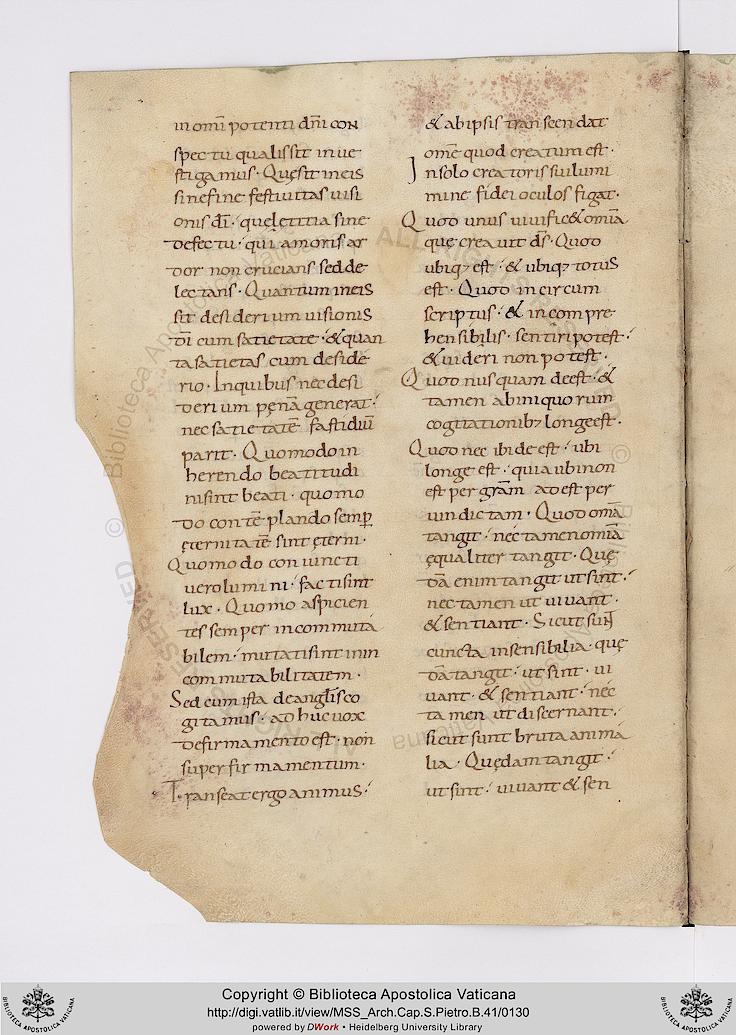 in omi potenti dni con
spectu qualis sit in ue
stigamus · Quę sit in eis
sine fine festiuitas uisi
onis di · que lętitia sine
defectu · qui amoris ar
dor non crucians sed de
lectans · Quantum in eis
sit desiderium uisionis
di cum satietate · & quan
ta satietas cum deside
rio · In quibus nec desi
derium pęna generat ·
nec satietate fastidiu
parit · Quomodo in
herendo beatitudi
ni sint beati · quomo
do conteplando semp
ęternitate sint ęterni ·
Quomodo coniuncti
uero lumini · facti sint
lux · Quomo aspicien
tes semper incommuta
bilem · mutati sint in in
commutabilitatem ·
Sed cum ista de anglis co
gitamus · adhuc uox
de firmamento est · non
super firmamentum ·
Transeat ergo animus ·
& ab ipsis transcendat
ome quod creatum est ·
In solo creatoris sui lumi
mine fidei oculos figat ·
Quod unus uiuific& omia
que creauit ds · Quod
ubiq; est · & ubiq; totus
est · Quod in circum
scriptus · & in compre
hensibilis · sentiri potest ·
& uideri non potest ·
Quod nusquam deest · &
tamen ab iniquorum
cogitationib; longe est ·
Quod nec ibi deest · ubi
longe est · quia ubi non
est per gram adest per
uindictam · Quod oma
tangit · nec tamen omia
ęqualiter tangit · Quę
da enim tangit ut sint ·
nec tamen ut uiuant ·
& sentiant · Sicut sunt
cuncta insensibilia · quę
da tangit · ut sint · ui
uant · & sentiant · nec
tamen ut discernant ·
sicut sunt bruta anima
lia · Quędam tangit ·
ut sint · uiuant & sen
Copyright © Biblioteca Apostolica Vaticana
http://digi.vatlib.it/view/MSS_Arch.Cap.S.Pietro.B.41/0130
powered by DWork • Heidelberg University Library
BIBLIOTECA APOSTOLICA VATICANA
BIBLIOTECA APOSTOLICA VATICANA